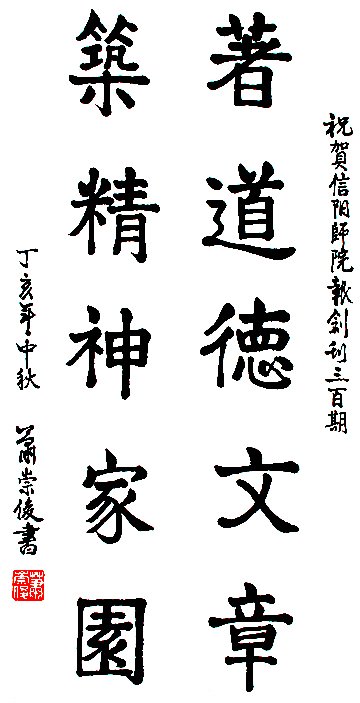 祝賀信阳師院報創刊三百期
著道德文章
築精神家園
丁亥年中秋 蕭崇俊書